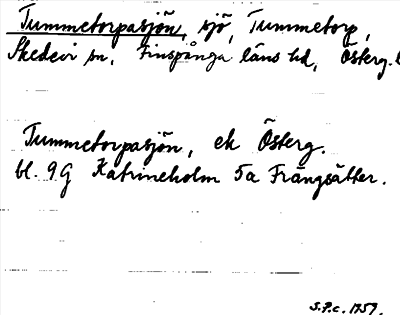 Tummetorpasjön, sjö, Tummetorp,
Skedevi sn, Finspånga läns hd, Österg. l
Tummetorpasjön, ek Österg.
bl. 9G Katrineholm 5a Frängsätter.
S.P.c. 1959.